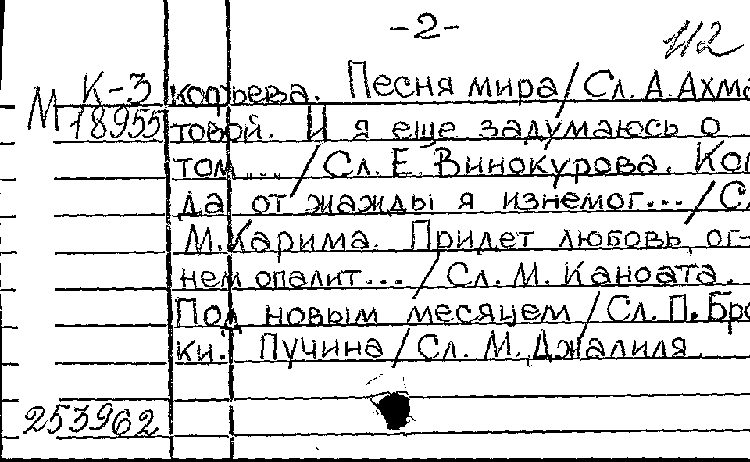 -2-
112
М К-3 копьева. Песня мира/Сл. А. Ахма
18955 товой. И я еще задумаюсь о
том.../Сл. Е. Винокурова. Ког
да от жажды я изнемог.../Сл
М. Карима. Придет любовь, ог-
нем опалит.../Сл. М. Каноата.
Под новым месяцем/Сл. П. Бро
ки. Пучина/Сл. М. Джалиля.
253962